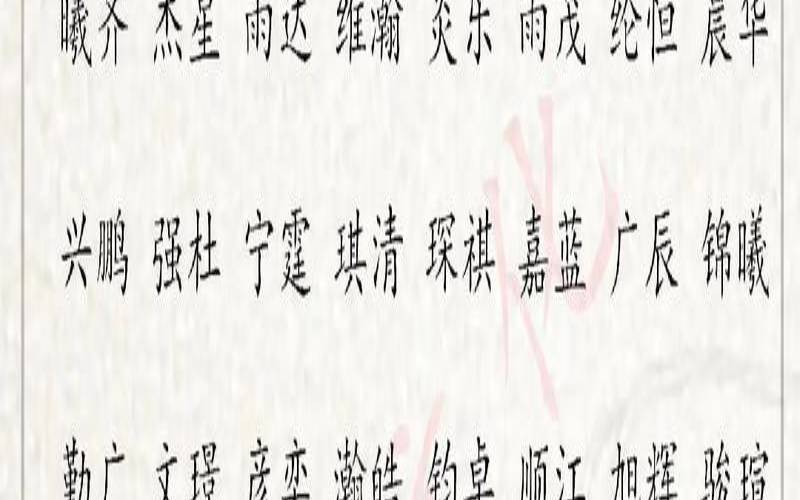 曦齐 杰星 雨达 维瀚 炎乐 雨茂 纶恒 辰华
兴鹏 强杜 宁霆 琪清 琛祺 嘉蓝 广辰 锦曦
勤广 文璟 彦奕 瀚皓 钧卓 顺江 旭辉 骏瑄